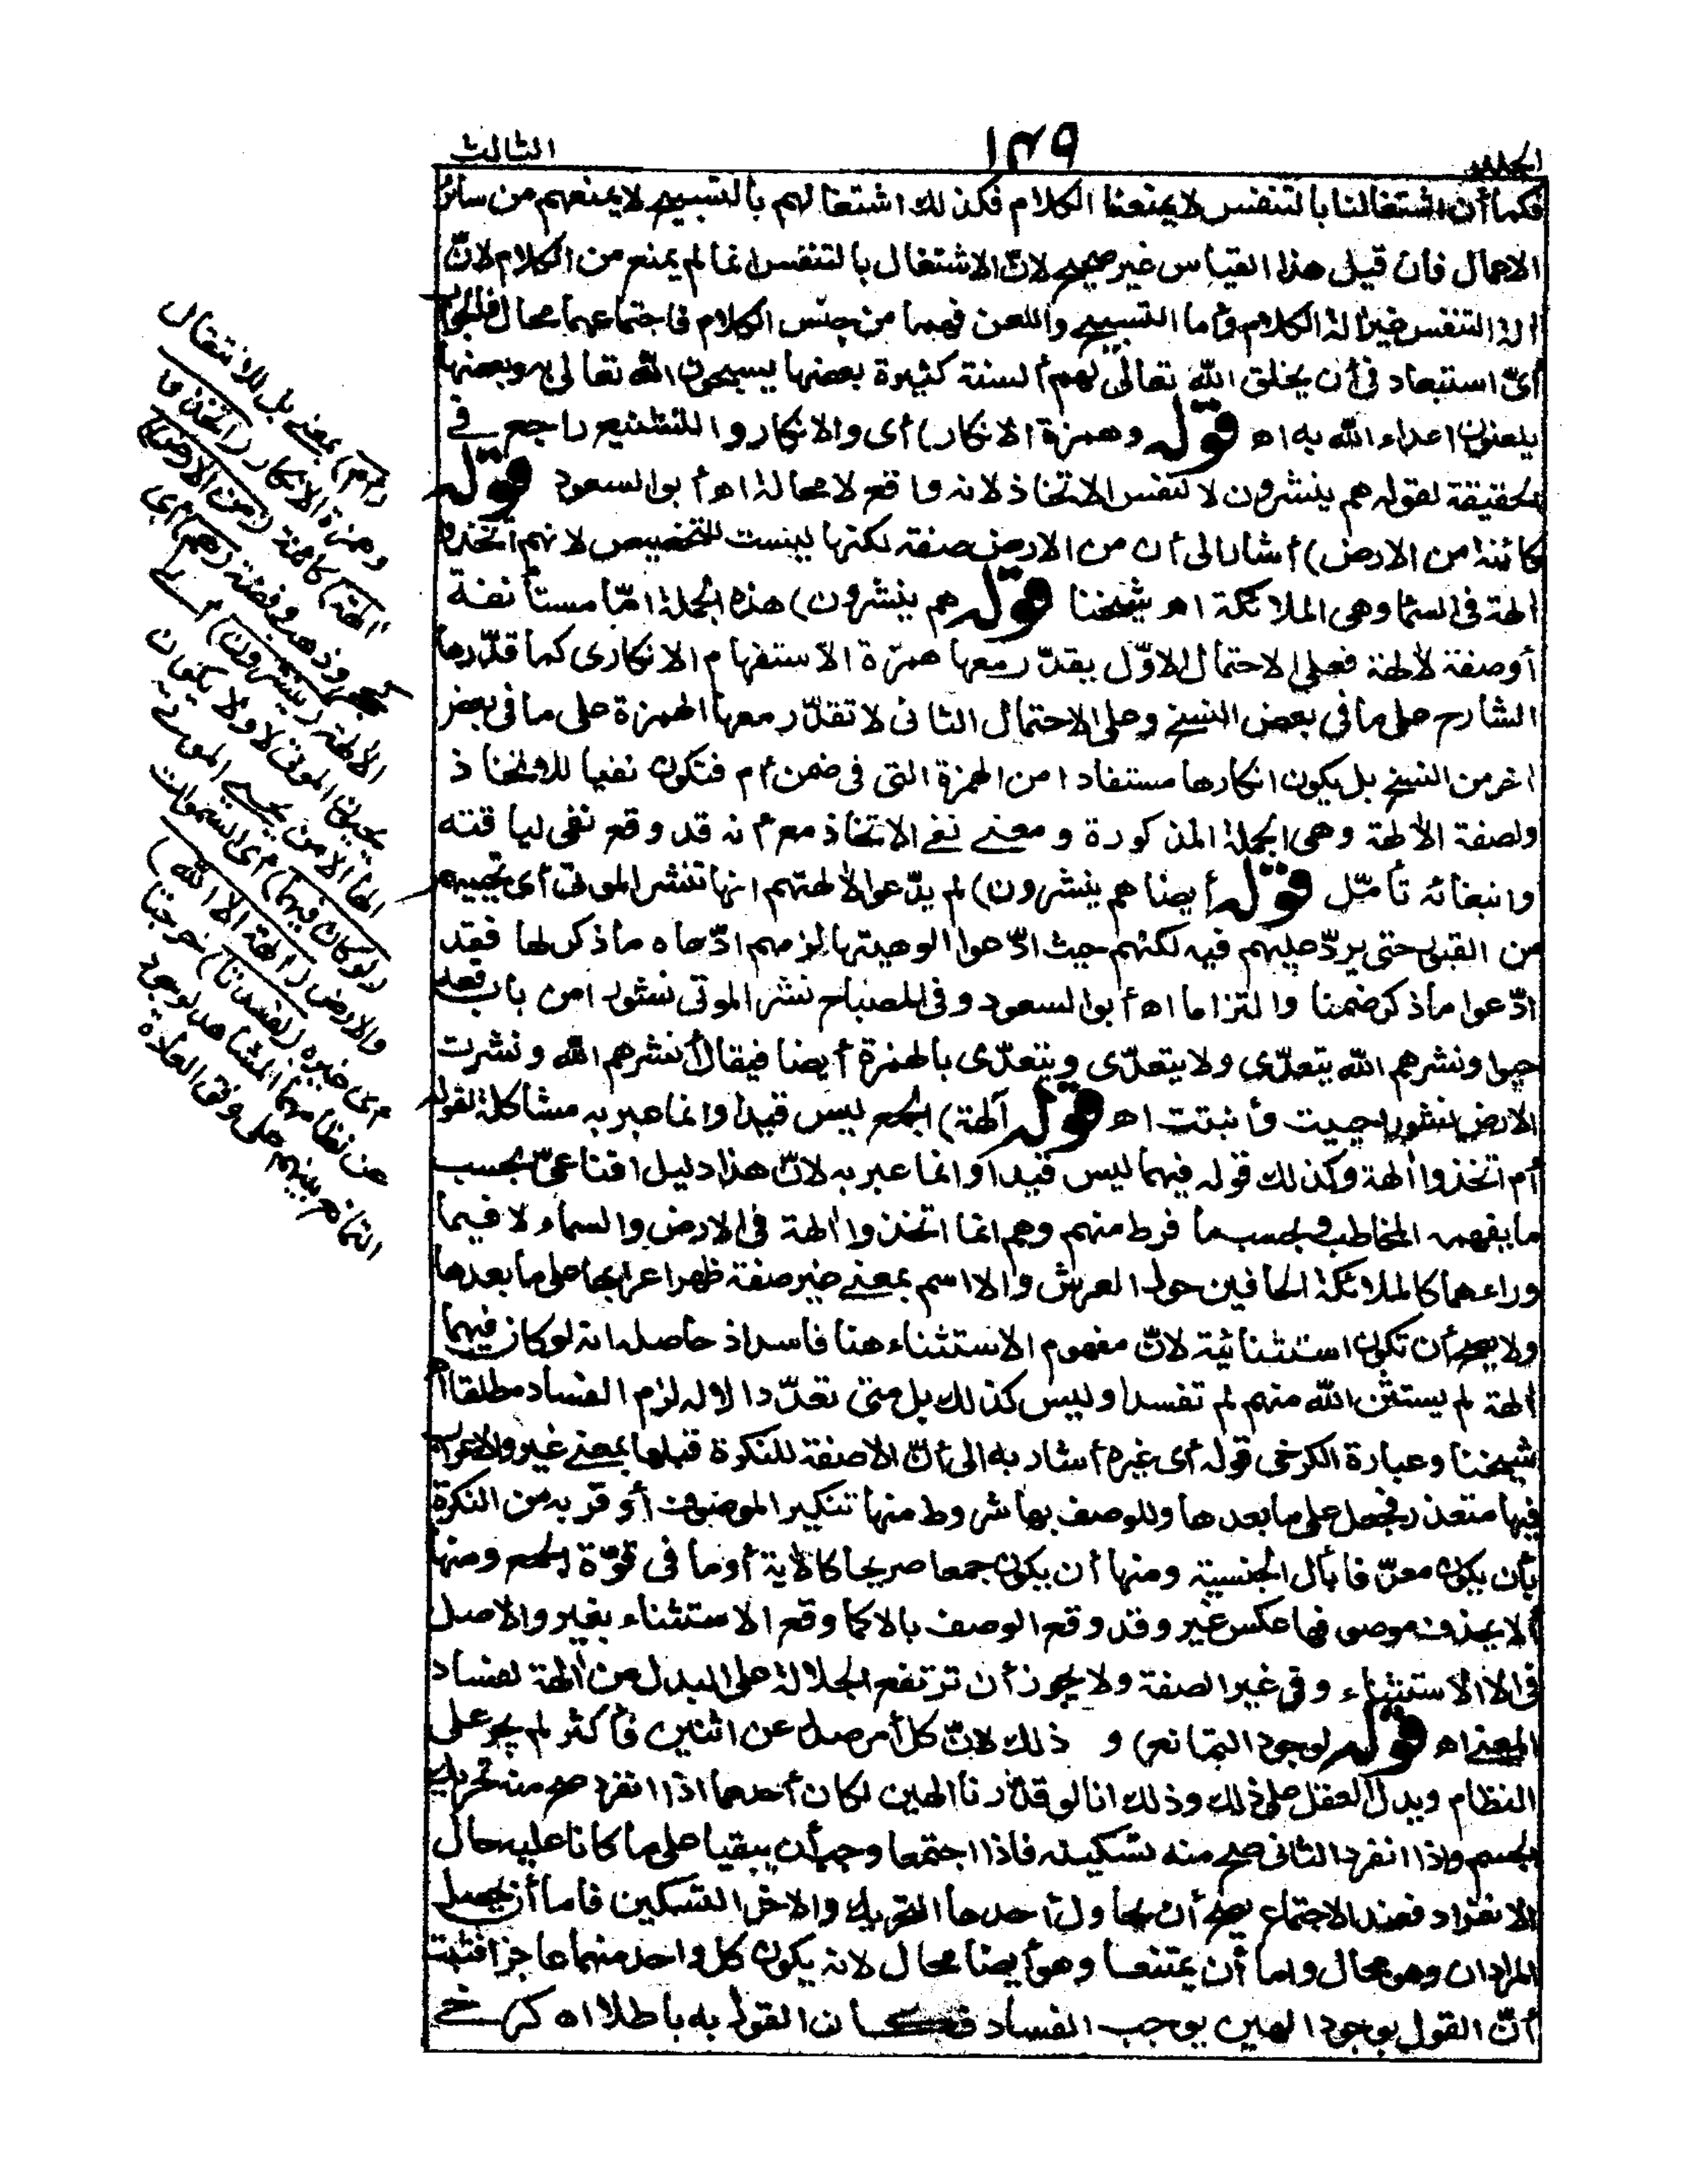 الجلد
١٤٩
الثالث
فكما أن اشتغالنا بالتنفس لا يمنعنا الكلام فكذلك اشتغالهم بالتسبيح لا يمنعهم من سائر
الاعمال فان قيل هذا القياس غير صحيح لانّ الاشتغال بالتنفس انما لم يمنع من الكلام لانّ
الة التنفس غير الة الكلام وأما التسبيح واللعن فهما من جنس الكلام فاجتماعهما محال فالجواب
أىّ استبعاد فى أن يخلق الله تعالى لهم ألسنة كثيرة بعضها يسبحون الله تعالى به وبعضها
يلعنون اعداء الله به اه قوله وهمزة الانكار) أى والانكار والتشنيع راجع فى
الحقيقة لقوله هم ينشرون لا لنفس الاتخاذ لانه واقع لا محالة اه أبو السعود قوله
كائنة من الارض) أشار الى أن من الارض صفة لكنها ليست للتخصيص لانهم اتخذوا
الهة فى السما وهى الملائكة اه شيخنا قوله هم ينشرون) هذه الجملة امّا مستأنفة
أو صفة لألهة فعلى الاحتمال الاوّل يقدّر معها همزة الاستفهام الانكارى كما قدّرها
الشارح على ما فى بعض النسخ وعلى الاحتمال الثانى لا تقدّر معها الهمزة على ما فى بعض
اخر من النسخ بل يكون انكارها مستفادا من الهمزة التى فى ضمن أم فتكون نفيا للاتخاذ
ولصفة الألهة وهى الجملة المذكورة ومعنى نفى الاتخاذ مع أنه قد وقع نفى لياقته
وانبغائه تأمّل قوله أيضا هم ينشرون) لم يدّعوا لألهتهم انها تنشر الموتى أى تحييهم
من القبور حتى يردّ عليهم فيه لكنهم حيث ادّعوا الوهيتها لزمهم ادّعاه ما ذكر لها فقد
ادّعوا ما ذكر ضمنا والتزاما اه أبو السعود وفى المصباح نشر الموتى نشورا من باب قعد
حيوا ونشرهم الله يتعدّى ولا يتعدّى ويتعدّى بالهمزة أيضا فيقال أنشرهم الله ونشرت
الارض نشورا حييت وأنبتت اه قوله آلهة) الجمع ليس قيدا وانما عبر به مشاكلة لقوله
أم اتخذوا ألهة وكذلك قوله فيهما ليس قيدا وانما عبر به لانّ هذا دليل اقناعىّ بحسب
ما يفهمه المخاطب وبحسب ما فرط منهم وهم انما اتخذوا ألهة فى الارض والسماء لا فيما
وراءهما كالملائكة الحافين حول العرش والا اسم بمعنى غير صفة ظهر اعرابها على ما بعدها
ولا يصح أن تكون استثنائية لانّ مفهوم الاستثناء هنا فاسد اذ حاصله انه لو كان فيهما
ألهة لم يستثن الله منهم لم تفسدا وليس كذلك بل متى تعدّد الاله لزم الفساد مطلقا اه
شيخنا وعبارة الكرخى قوله أى غيره أشار به الى أنّ الا صفة للنكرة قبلها بمعنى غير والاعراب
فيها متعذر فجعل على ما بعدها وللوصف بها شروط منها تنكير الموصوف أو قربه من النكرة
بأن يكون معرّفا بأل الجنسية ومنها أن يكون جمعا صريحا كالاية أو ما فى قوّة الجمع ومنها
ألا يحذف موصوفها عكس غير وقد وقع الوصف بالا كما وقع الاستثناء بغير والاصل
فى الا الاستثناء وفى غير الصفة ولا يجوز أن ترتفع الجلالة على البدل من ألهة لفساد
المعنى اه قوله لوجود التمانع) و ذلك لانّ كل أمر صدر عن اثنين فأكثر لم يجر على
النظام ويدل العقل على ذلك وذلك انا لو قدّرنا الهين لكان أحدهما اذا انفرد صح منه تحريك
الجسم واذا انفرد الثانى صح منه تسكينه فاذا اجتمعا وجب أن يبقيا على ما كانا عليه حال
الانفراد فعند الاجتماع يصح أن يحاول أحدهما التحريك والاخر التسكين فاما أن يحصل
المرادان وهو محال واما أن يمتنعا وهو أيضا محال لانه يكون كل واحد منهما عاجزا فثبت
أنّ القول بوجود الهين يوجب الفساد فكان القول به باطلا اه كرخى
(أم) بمعنى بل للانتقال
وهمزة الانكار (اتخذوا
ألهة) كائنة (من الارض)
كحجر وذهب وفضة (هم) أى
الألهة (ينشرون) أى
يحيون الموتى لا ولا يكون
الها الا من يحيى الموتى
(لو كان فيهما) أى السموات
والارض (ألهة الا الله)
أى غيره (لفسدتا) خرجتا
عن نظامهما المشاهد لوجود
التمانع بينهم على وفق العادة